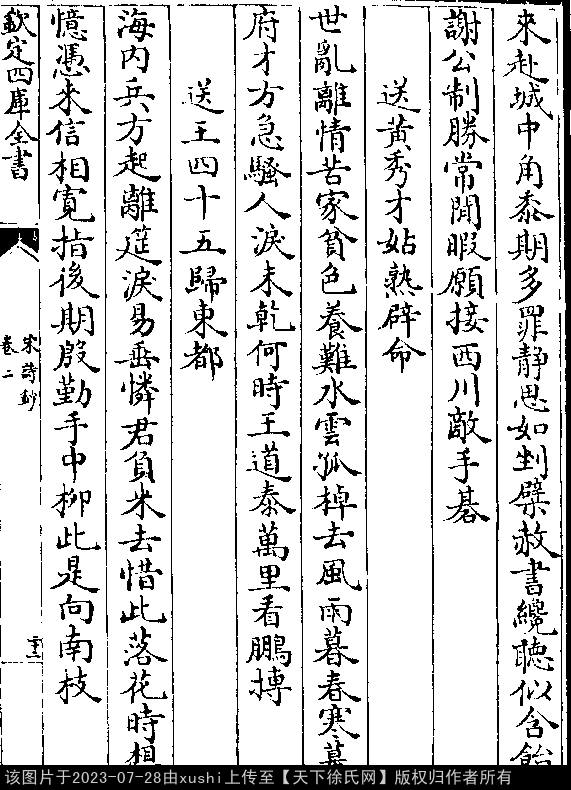 來赴城中角黍期多罪靜思如剉糪赦書纔聽似含飴
謝公制勝常閒暇願接西川敵手碁
送黃秀才姑熟辟命
世亂離情苦家貧色養難水雲孤棹去風雨暮春寒幕
府才方急騷人淚未乾何時王道泰萬里看鵬摶
送王四十五歸東都
海內兵方起離筵淚易垂憐君負米去惜此落花時想
憶憑來信相寬指後期殷勤手中柳此是向南枝
欽定四庫全書
宋詩鈔
卷二
二十二
该图片于2023-07-28由xushi上传至【天下徐氏网】版权归作者所有